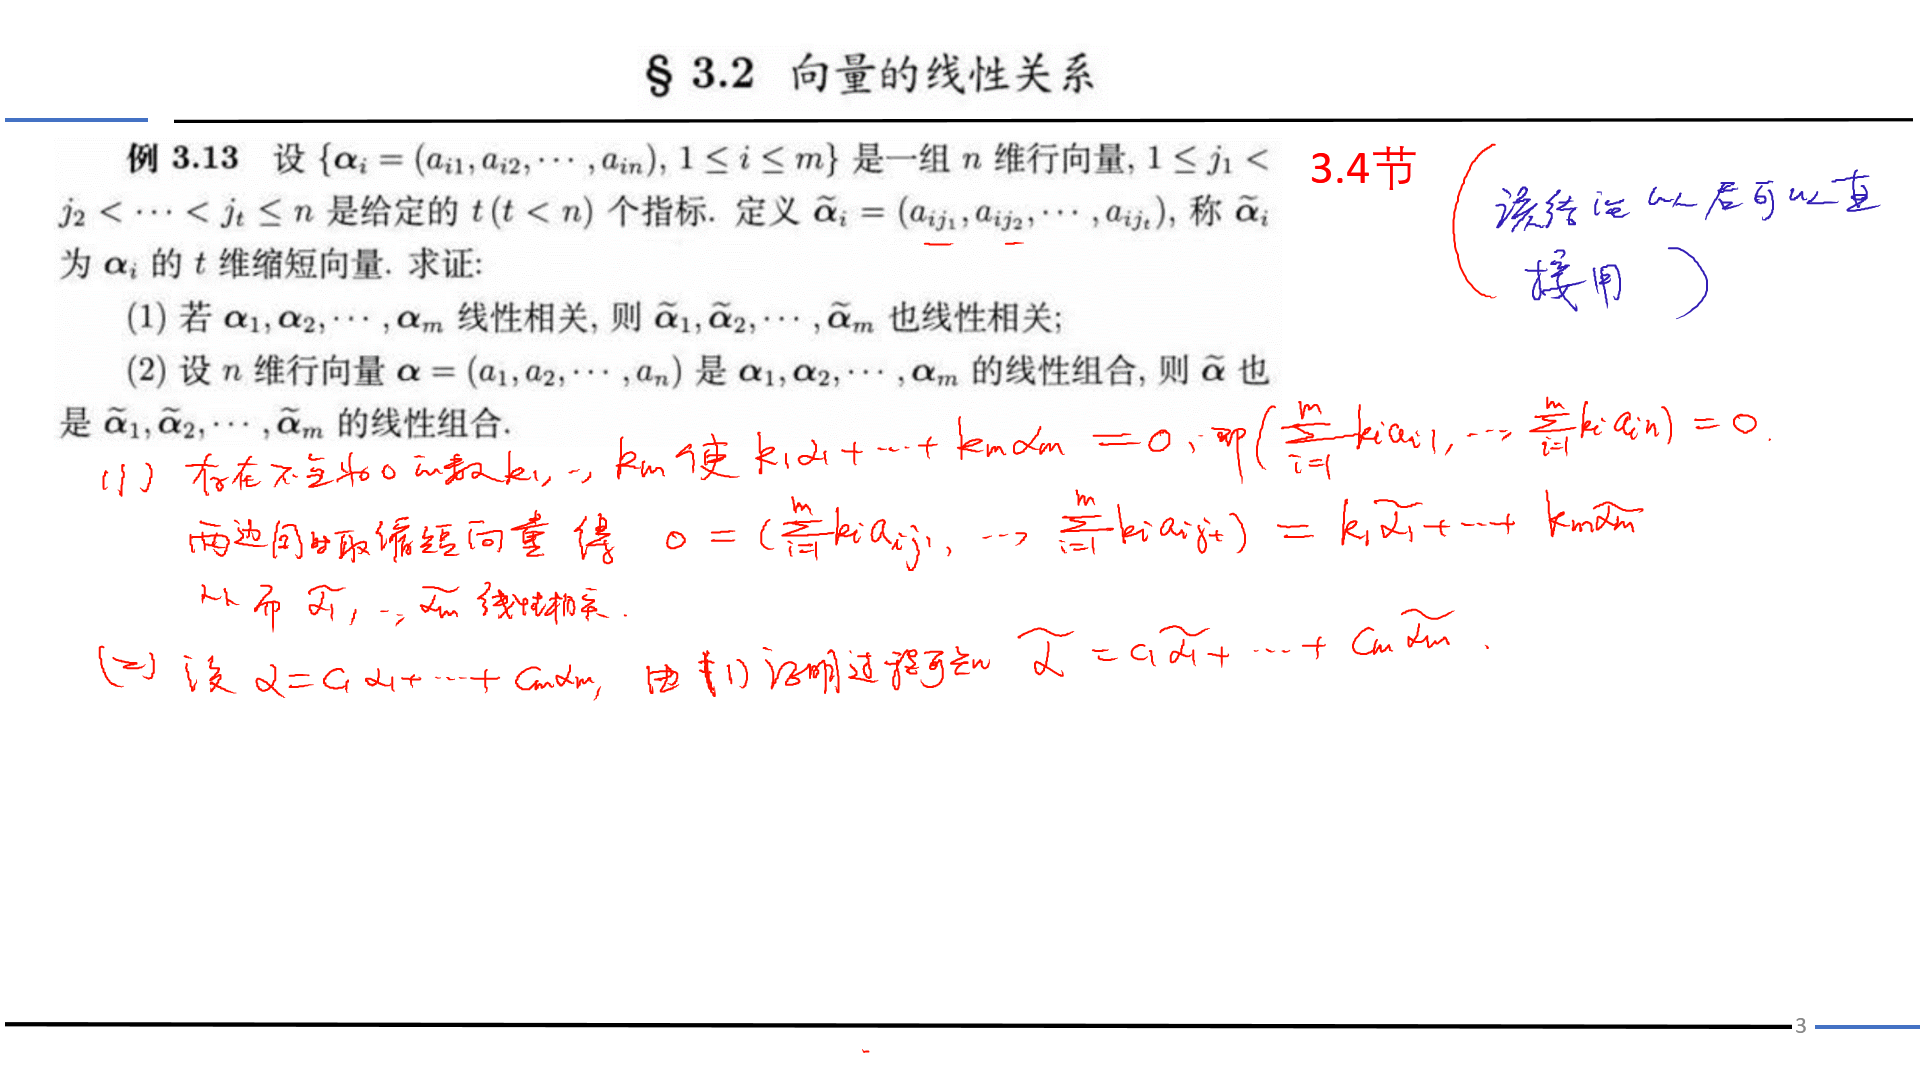 § 3.2 向量的线性关系
例 3.13 设 {α_i = (a_{i1}, a_{i2}, ⋯ , a_{in}), 1 ≤ i ≤ m} 是一组 n 维行向量, 1 ≤ j_1 <
j_2 < ⋯ < j_t ≤ n 是给定的 t (t < n) 个指标. 定义 α̃_i = (a_{ij_1}, a_{ij_2}, ⋯ , a_{ij_t}), 称 α̃_i
为 α_i 的 t 维缩短向量. 求证:
(1) 若 α_1, α_2, ⋯ , α_m 线性相关, 则 α̃_1, α̃_2, ⋯ , α̃_m 也线性相关;
(2) 设 n 维行向量 α = (a_1, a_2, ⋯ , a_n) 是 α_1, α_2, ⋯ , α_m 的线性组合, 则 α̃ 也
是 α̃_1, α̃_2, ⋯ , α̃_m 的线性组合.
3.4节
(该结论以后可以直
接用)
(1) 存在不全为0的数k_1, ⋯, k_m 使 k_1α_1 + ⋯ + k_mα_m = 0, 即(∑_{i=1}^m k_i a_{i1}, ⋯, ∑_{i=1}^m k_i a_{in}) = 0.
两边同时取缩短向量 得 0 = (∑_{i=1}^m k_i a_{ij_1}, ⋯, ∑_{i=1}^m k_i a_{ij_t}) = k_1α̃_1 + ⋯ + k_mα̃_m
从而 α̃_1, ⋯, α̃_m 线性相关.
(2) 设 α = c_1α_1 + ⋯ + c_mα_m, 由(1)证明过程可知 α̃ = c_1α̃_1 + ⋯ + c_mα̃_m.
3